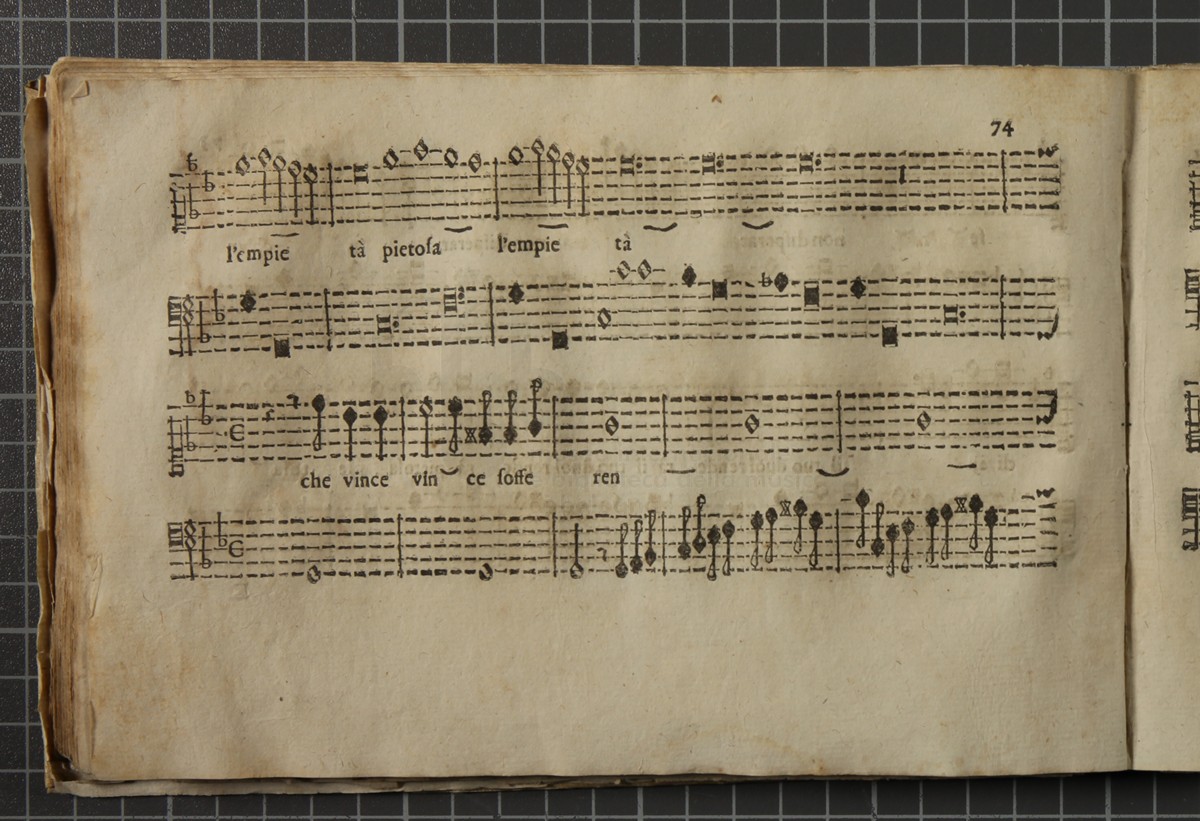 74
l'empie tà pietoſa l'empie tà
che vince vin ce ſoffe ren